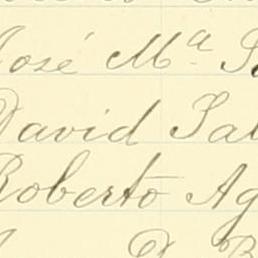 José Mª S
David Sal
Roberto Ag